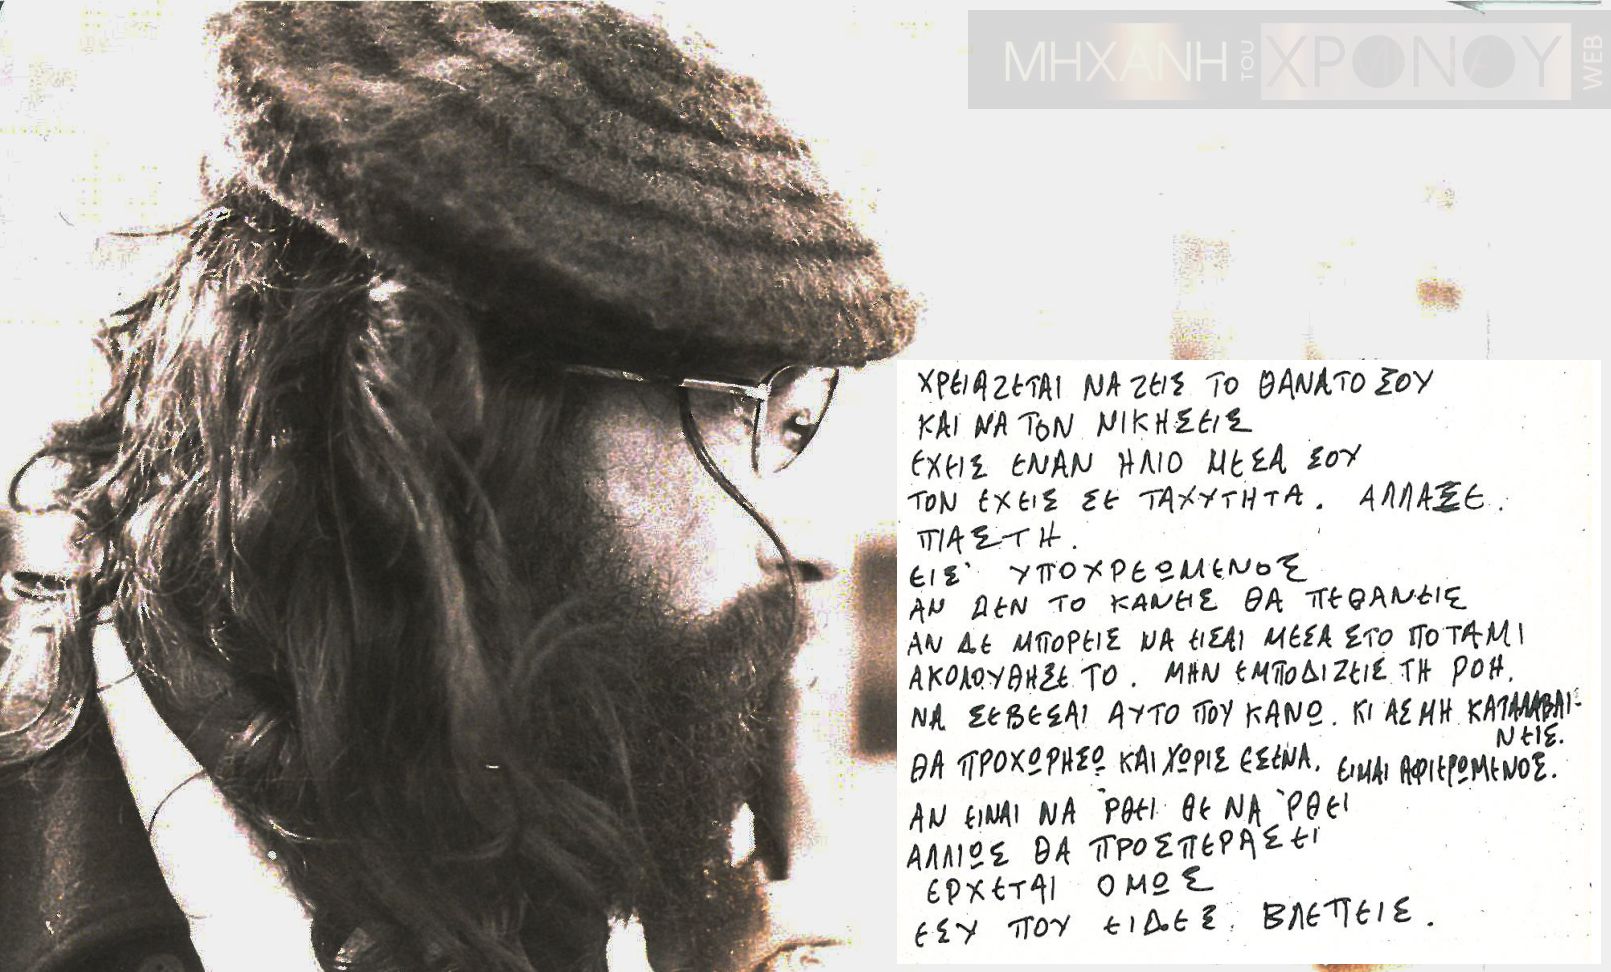 ΜΗΧΑΝΗ ΤΟΥ ΧΡΟΝΟΥ WEB
ΧΡΕΙΑΖΕΤΑΙ ΝΑ ΖΕΙΣ ΤΟ ΘΑΝΑΤΟ ΣΟΥ
ΚΑΙ ΝΑ ΤΟΝ ΝΙΚΗΣΕΙΣ
ΕΧΕΙΣ ΕΝΑΝ ΗΛΙΟ ΜΕΣΑ ΣΟΥ
ΤΟΝ ΕΧΕΙΣ ΣΕ ΤΑΧΥΤΗΤΑ. ΑΛΛΑΞΕ.
ΠΙΑΣΤΗ.
ΕΙΣ' ΥΠΟΧΡΕΩΜΕΝΟΣ
ΑΝ ΔΕΝ ΤΟ ΚΑΝΕΙΣ ΘΑ ΠΕΘΑΝΕΙΣ
ΑΝ ΔΕ ΜΠΟΡΕΙΣ ΝΑ ΕΙΣΑΙ ΜΕΣΑ ΣΤΟ ΠΟΤΑΜΙ
ΑΚΟΛΟΥΘΗΣΕ ΤΟ. ΜΗΝ ΕΜΠΟΔΙΖΕΙΣ ΤΗ ΡΟΗ.
ΝΑ ΣΕΒΕΣΑΙ ΑΥΤΟ ΠΟΥ ΚΑΝΩ. ΚΙ ΑΣ ΜΗ ΚΑΤΑΛΑΒΑΙ-
ΝΕΙΣ.
ΘΑ ΠΡΟΧΩΡΗΣΩ ΚΑΙ ΧΩΡΙΣ ΕΣΕΝΑ. ΕΙΜΑΙ ΑΦΙΕΡΩΜΕΝΟΣ.
ΑΝ ΕΙΝΑΙ ΝΑ 'ΡΘΕΙ ΘΕ ΝΑ 'ΡΘΕΙ
ΑΛΛΙΩΣ ΘΑ ΠΡΟΣΠΕΡΑΣΕΙ
ΕΡΧΕΤΑΙ ΟΜΩΣ
ΕΣΥ ΠΟΥ ΕΙΔΕΣ. ΒΛΕΠΕΙΣ.